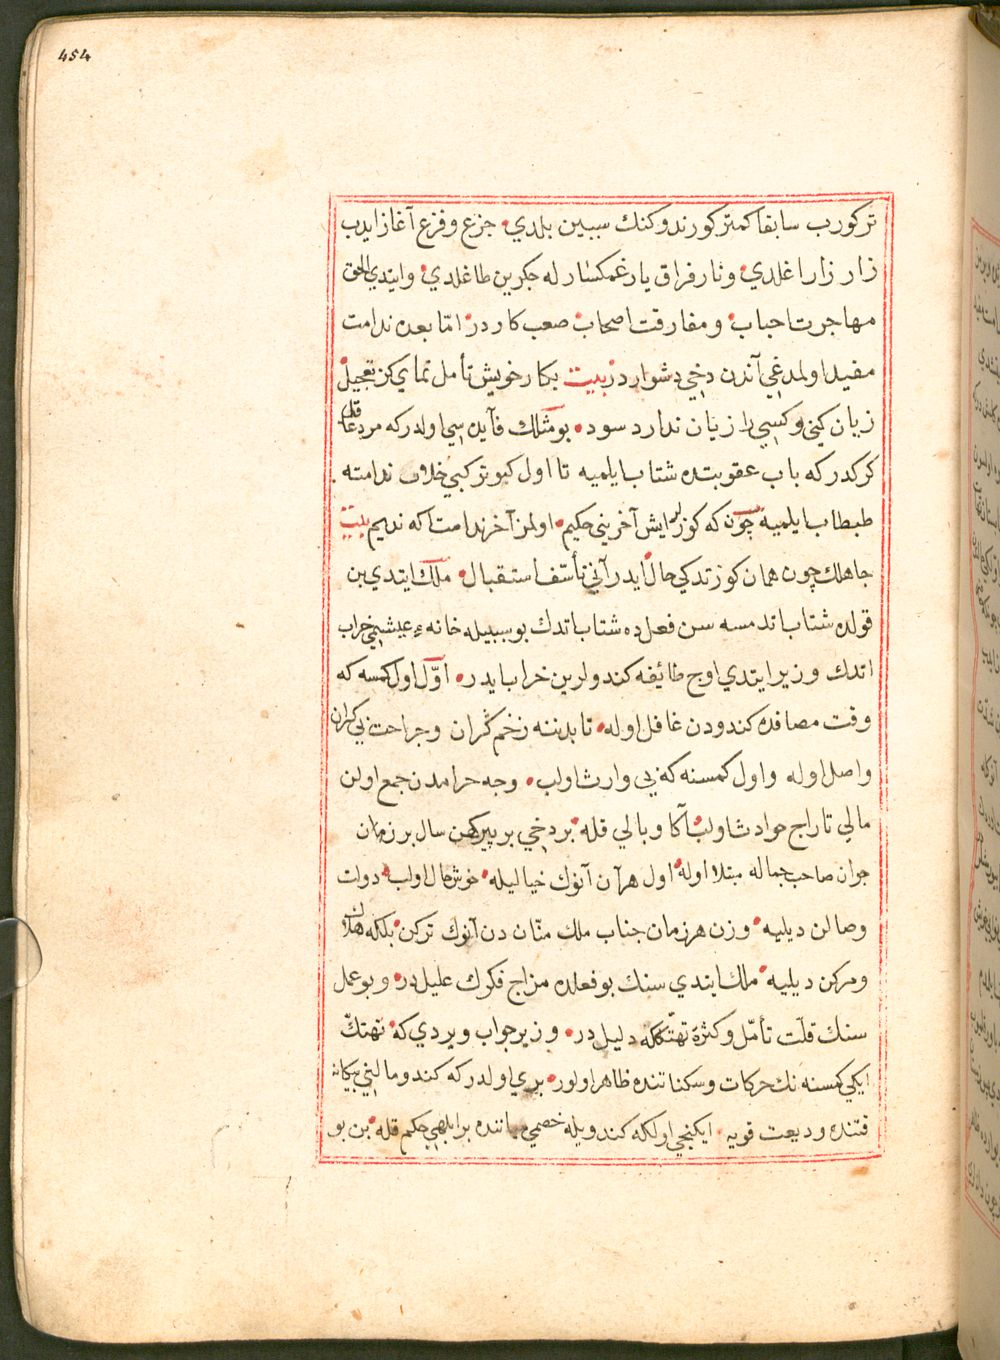 454
تر كورب سابقا كمتر كورندوكنك سببين بلدي جزع وفزع آغاز ايدب
زار زار اغلدي ونار فراق يار غمكسار له جكرين طاغلدي وايتدي الحق
مهاجرت احباب ومفارقت اصحاب صعب كاردر امّا بعده ندامت
مفيد اولمدغي آندن دخي دشواردر بيت بكار خويش تأمل نماي كز تعجيل
زيان كني وكسي را زيان ندارد سود بو مثلك فآيده سي اولدر كه مرد عاقل
كركدر كه باب عقوبتده شتاب ايلميه تا اول كبوتر كبي خلاف ندامته
طبطاب ايلميه چون كه كوزلر ايش آخريني حكيم اولمز آخر ندامت اكه نديم بيت
جاهلك چون همان كوزتدكي حال ايدر آني تأسّف استقبال ملك ايتدي بن
قولده شتاب اتدمسه سن فعلده شتاب اتدك بو سببيله خانهء عيشمي خراب
اتدك وزير ايتدي اوج طائفه كندولرين خراب ايدر اوّل اول كمسه كه
وقت مصافده كندودن غافل اوله تا بدننه زخم گران وجراحت بي كران
واصل اوله واول كمسنه كه بي وارث اولب وجه حرامدن جمع اولن
مالي تاراج حوادث اولب آكا وبالي قله بر دخي بر پير كهن سال بر زن
جوان صاحب جماله مبتلا اوله اول هر آن آنوك خياليله خوش حال اولب دولت
وصالن ديليه وزن هر زمان جناب ملك منّان دن آنوك تركن بلكه هلاك
ومركن ديليه ملك ايتدي سنك بو فعلده مزاج فكرك عليلدر وبو عمل
سنك قلّت تأمّل وكثرة تهتّككه دليلدر وزير جواب ويردي كه تهتك
ايكي كمسنه نك حركات وسكناتنده ظاهر اولور بري اولدر كه كندو مالني بيكانه
فتنده وديعت قويه ايكنجي اولكه كندويله خصمي مياننده بر ابلهي حكم قله بن بو